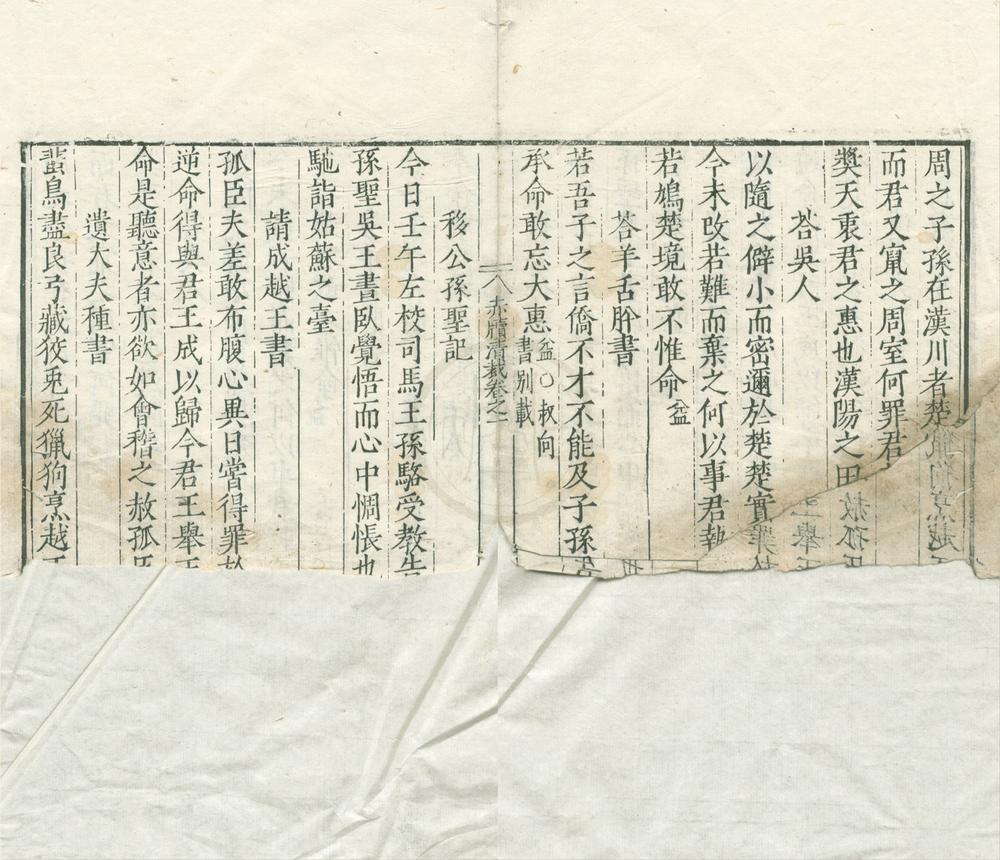 周之子孫在漢川者楚
而君又竄之周室何罪君
奬天衷君之惠也漢陽之田
荅吳人
以隨之僻小而密邇於楚楚實
今未改若難而棄之何以事君執
若鳩楚境敢不惟命 盆
荅羊舌肸書
若吾子之言僑不才不能及子孫
承命敢忘大惠 盆〇叔向書別載
赤牘清裁卷之一
移公孫聖記
今日壬午左校司馬王孫駱受教告
孫聖吳王晝臥覺悟而心中惆悵也
馳詣姑蘇之臺
請成越王書
孤臣夫差敢布腹心異日嘗得罪於
逆命得與君王成以歸今君王舉
命是聽意者亦欲如會稽之赦孤
遺大夫種書
蜚鳥盡良弓藏狡兎死獵狗烹越